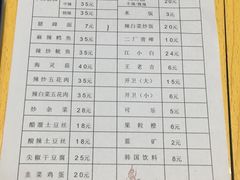 中辣 35元
35元
腊 辣 面 7元
麻辣鳝鱼 35元
辣炒鱿鱼 35元
海灵菇 20元
辣炒五花肉 35元
辣白菜五花肉 35元
炒杂菜 28元
醋溜土豆丝 18元
酸辣土豆丝 18元
尖椒干豆腐 25元
韭菜鸡蛋 20元
20元
米饭 3元
辣白菜炒饭 20元
二厂青啤 10元
江小白 24元
王老吉 6元
开卫(大) 15元
开卫(小) 6元
可乐 5元
果粒橙 6元
蓝矿 2元
韩国饮料 8元